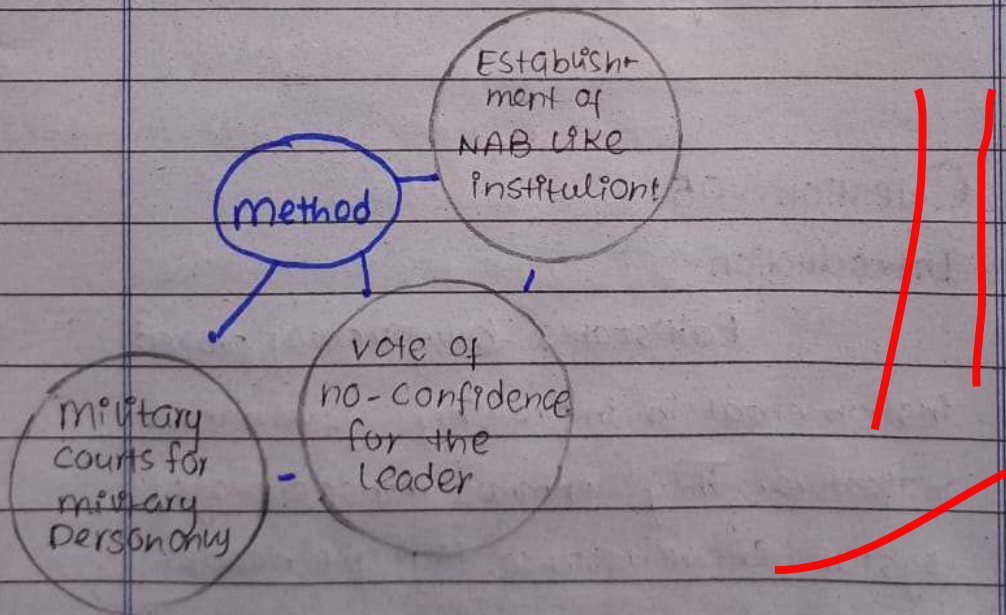 Establish-
ment of
NAB like
institutions
method
vote of
no-confidence
for the
leader
military
courts for
military
person only